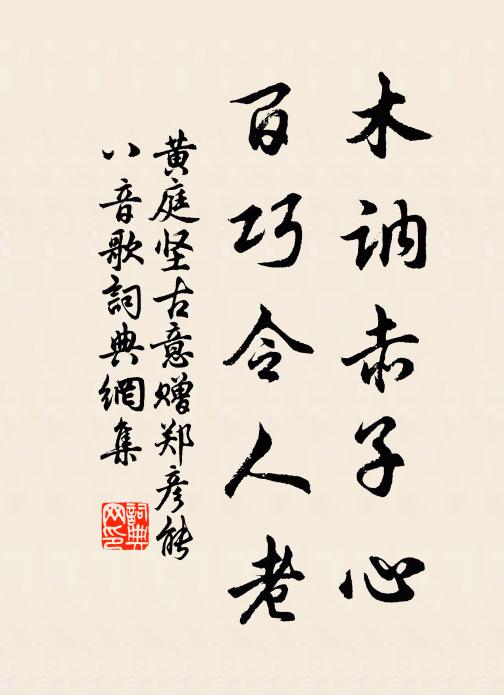 木讷赤子心
百巧令人老
黄庭坚古意赠郑彦能
八音歌詞典網集
詞典
网印